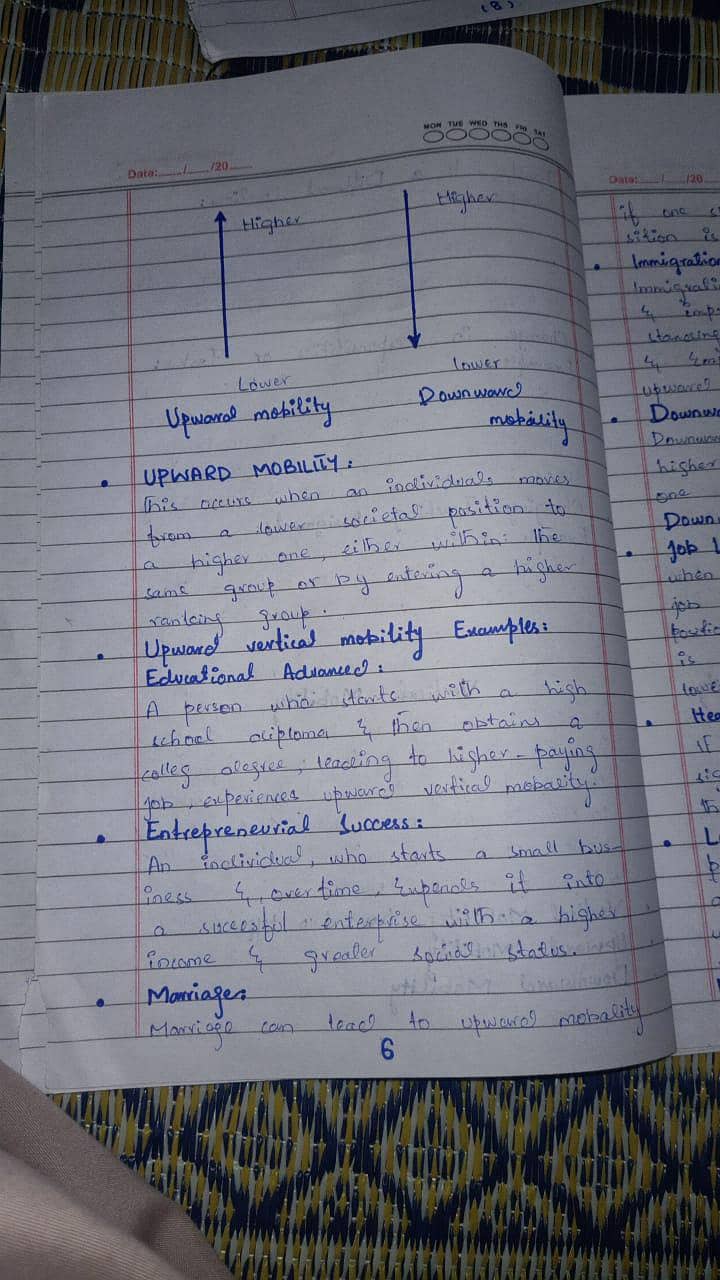 (8)
MON TUE WED THS FRI SAT
Date:____/____/20____
Higher
Higher
Lower
lower
Upward mobility
Downward
mobality
• UPWARD MOBILITY:
This occurs when an individuals moves
from a lower societal position to
a higher one, either within the
same group or by entering a higher
ranking group.
• Upward vertical mobility Examples:
Educational Advanced:
A person who starts with a high
school diploma & then obtains a
colleg degree, leading to higher-paying
job, experiences upward vertical mobality.
• Entrepreneurial Success:
An individual, who starts a small bus-
iness &, overtime, Expends it into
a succesful enterprise with a higher
income & greater social status.
• Marriage:
Marriage can lead to upward mobality
6
Date: / /20
if one
sition is
• Immigration
&
standing
&
upward
• Downw
Downwar
higher
one
Down
• Job L
when
job
is
lowe
• Hea
if
sig
th
• L